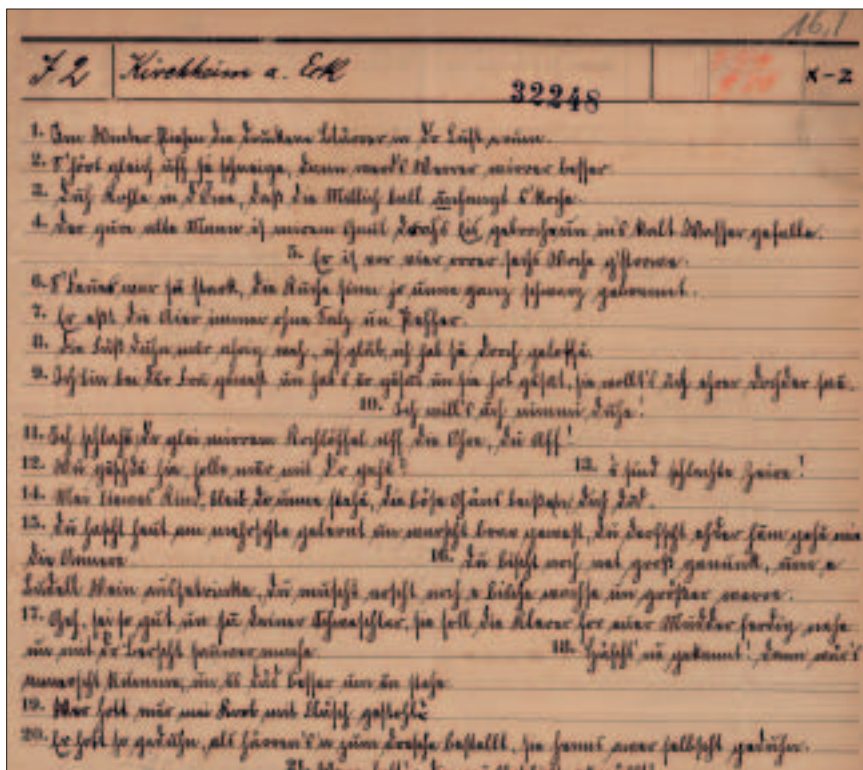 16,1
J 2 Kirchheim a. Eck x-z
32248
1. Em Winter fliehen die druckene Blärrer in dr Luft rum.
2. S'hört gleich uff zu schneige, dann werd's Werrer wirrer besser
3. Duh Kohle in d'Ove, daß die Millich ball anfangt s'Koche.
4. Der gure alte Mann is mirem Gaul dorchs Eis gebroche un in's kalt Wasser gefalle.
5. Er is vor vier orrer sechs Woche g'storwe.
6. S'Feuer war zu stark, die Kuche sinn jo unne ganz schwarz gebrennt.
7. Er eßt die Aier immer ohne Salz un Peffer.
8. Die Füß duhn mer weh, ich glab, ich hab se dorch geloffe.
9. Ich bin bei der Fra gewest un hab's er gsaat un sie hot gsaat, sie wollt's ach ehrer Dochder saa.
10. Ich will's ach nimmi duhe!
11. Ich schlage dr glei mirrem Kochlöffel uff die Ohre, du Aff!
12. Wu gehschde hie, solle mer mit dr geh?
13. s sind schlechte Zeire!
14. Mei liewes Kind, bleib do unne stehe, die böse Gäns beiße dich dod.
15. Du hascht heut am mehrschte gelernt un warscht brav gewest, du derfscht ehder häm gehe wie
die Annere
16. Du bischt noch net groß genunk, um e
Budell Wein auszetrinke, du muscht erscht noch e bißche wachse un größer werre.
17. Geh, sei so gut un sa deiner Schweschter, sie soll die Klerer for eier Mudder ferdig nähe
un mit dr Berscht sauwer mache.
18. Häscht en gekennt! dann wär's
annerscht kumme, un es dät besser um en stehe
19. Wer hott mer mei Korb mit Fläsch gestohle
20. Er hott so geduhn, als härren's n zum dresche bestellt, sie henns awer selbscht geduhn.